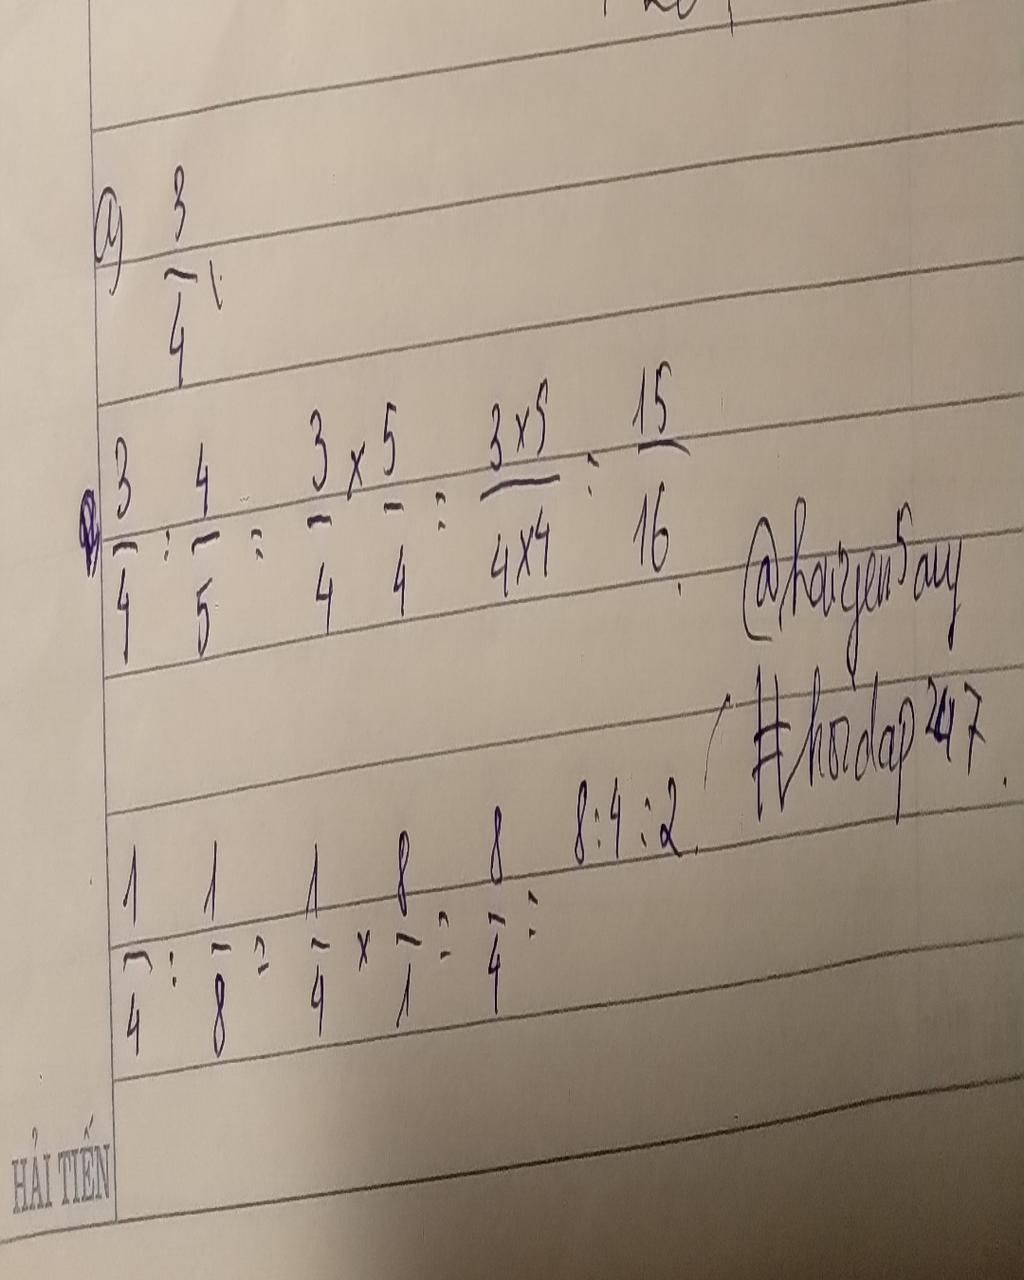 a) 3/4 :
3/4 : 4/5 = 3/4 x 5/4 = 3x5/4x4 = 15/16.
@haiyen5auy
#hoidap247.
1/4 : 1/8 = 1/4 x 8/1 = 8/4 = 8:4=2.
HẢI TIẾN